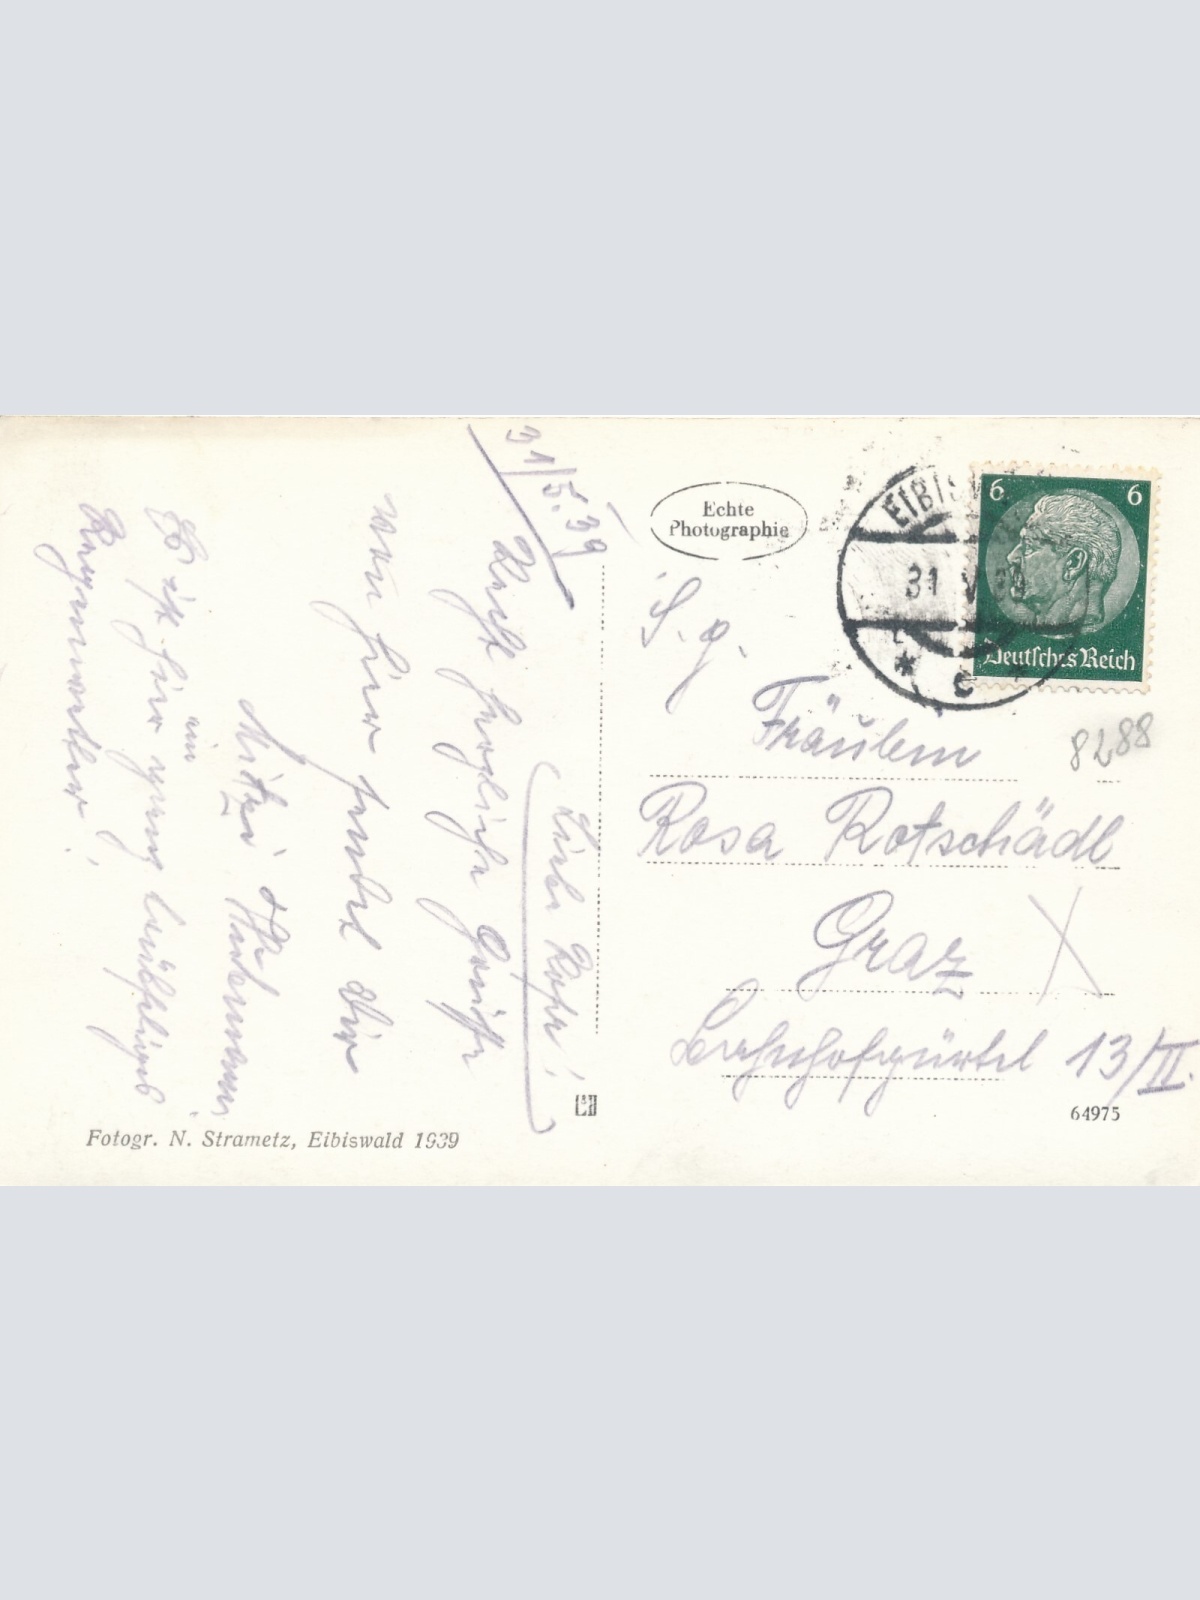 31/5.39
Liebe Rosa!
Recht herzliche Grüße
von hier sendet Dir
Mitzi
Es ist hier ganz
ein
Regenwetter!
Echte
Photographie
EIBISW
31 V 39
c
6 6
Deutsches Reich
S. g.
Fräulein
8288
Rosa Rotschädl
Graz
Bahnhofgürtel 13/II.
64975
Fotogr. N. Strametz, Eibiswald 1939